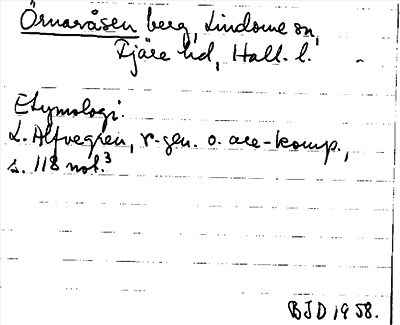 Örnaråsen berg, Lindome sn,
Fjäre hd, Hall. l.
Etymologi:
L. Alfvegren, r-gen. o. ace-komp.,
s. 118 not.3
BJD 1958.